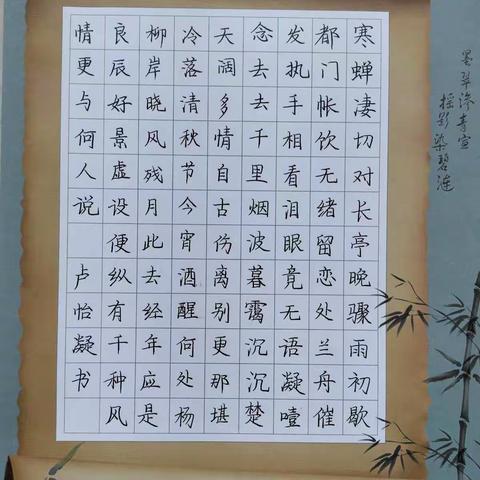 墨翠渗青宣
摇影染碧涟
寒蝉凄切对长亭晚骤雨初歇
都门帐饮无绪留恋处兰舟催
发执手相看泪眼竟无语凝噎
念去去千里烟波暮霭沉沉楚
天阔多情自古伤离别更那堪
冷落清秋节今宵酒醒何处杨
柳岸晓风残月此去经年应是
良辰好景虚设便纵有千种风
情更与何人说 卢怡凝书